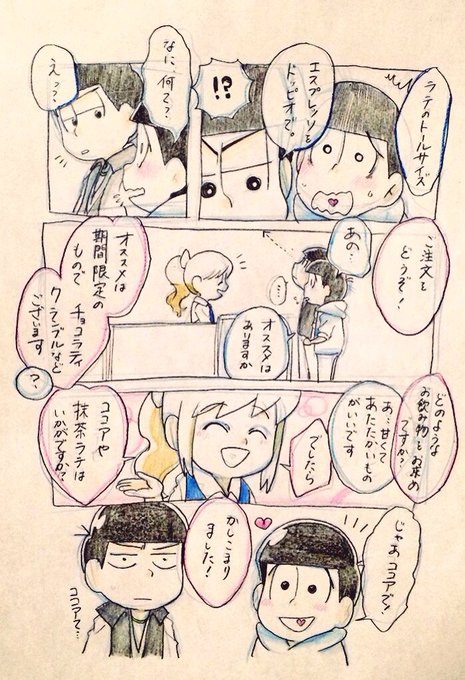 ラテのトールサイズ
エスプレッソを
ドッピオで。
!?
なに、何て?
えっ?
ご注文を
どうぞ!
あの…
オススメは
ありますか
オススメは
期間限定の
もので チョコラティ
クランブルなど
ございます
?
どのような
お飲み物をお求め
ですか?
あ、甘くて
あたたかいもの
がいいです
でしたら
ココアや
抹茶ラテは
いかがですか?
じゃあココアで!
かしこまり
ました!
ココアて…